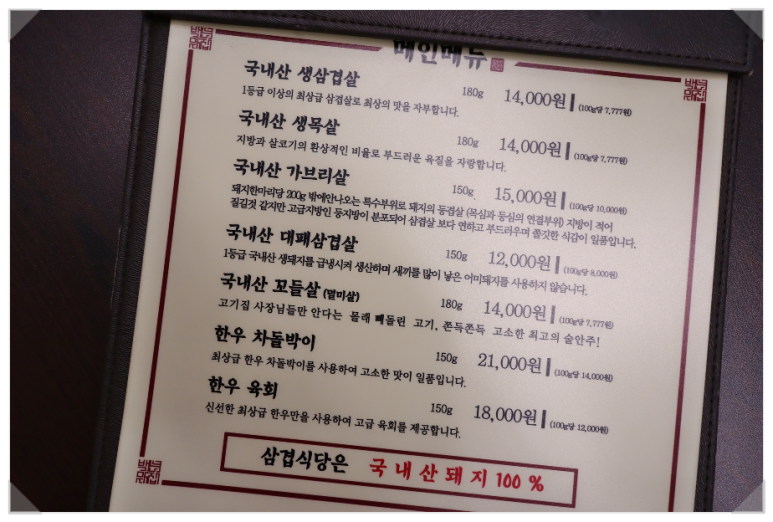 메인메뉴
국내산 생삼겹살 180g 14,000원 (100g당 7,777원)
1등급 이상의 최상급 삼겹살로 최상의 맛을 자부합니다.
국내산 생목살 180g 14,000원 (100g당 7,777원)
지방과 살코기의 환상적인 비율로 부드러운 육질을 자랑합니다.
국내산 가브리살 150g 15,000원 (100g당 10,000원)
돼지한마리당 200g 밖에안나오는 특수부위로 돼지의 등겹살 (목심과 등심의 연결부위) 지방이 적어
질길것 같지만 고급지방인 등지방이 분포되어 삼겹살 보다 연하고 부드러우며 쫄깃한 식감이 일품입니다.
국내산 대패삼겹살 150g 12,000원 (100g당 8,000원)
1등급 국내산 생돼지를 급냉시켜 생산하며 새끼를 많이 낳은 어미돼지를 사용하지 않습니다.
국내산 꼬들살 (덜미살) 180g 14,000원 (100g당 7,777원)
고기집 사장님들만 안다는 몰래 빼돌린 고기, 쫀득쫀득 고소한 최고의 술안주!
한우 차돌박이 150g 21,000원 (100g당 14,000원)
최상급 한우 차돌박이를 사용하여 고소한 맛이 일품입니다.
한우 육회 150g 18,000원 (100g당 12,000원)
신선한 최상급 한우만을 사용하여 고급 육회를 제공합니다.
삼겹식당은 국내산돼지 100%